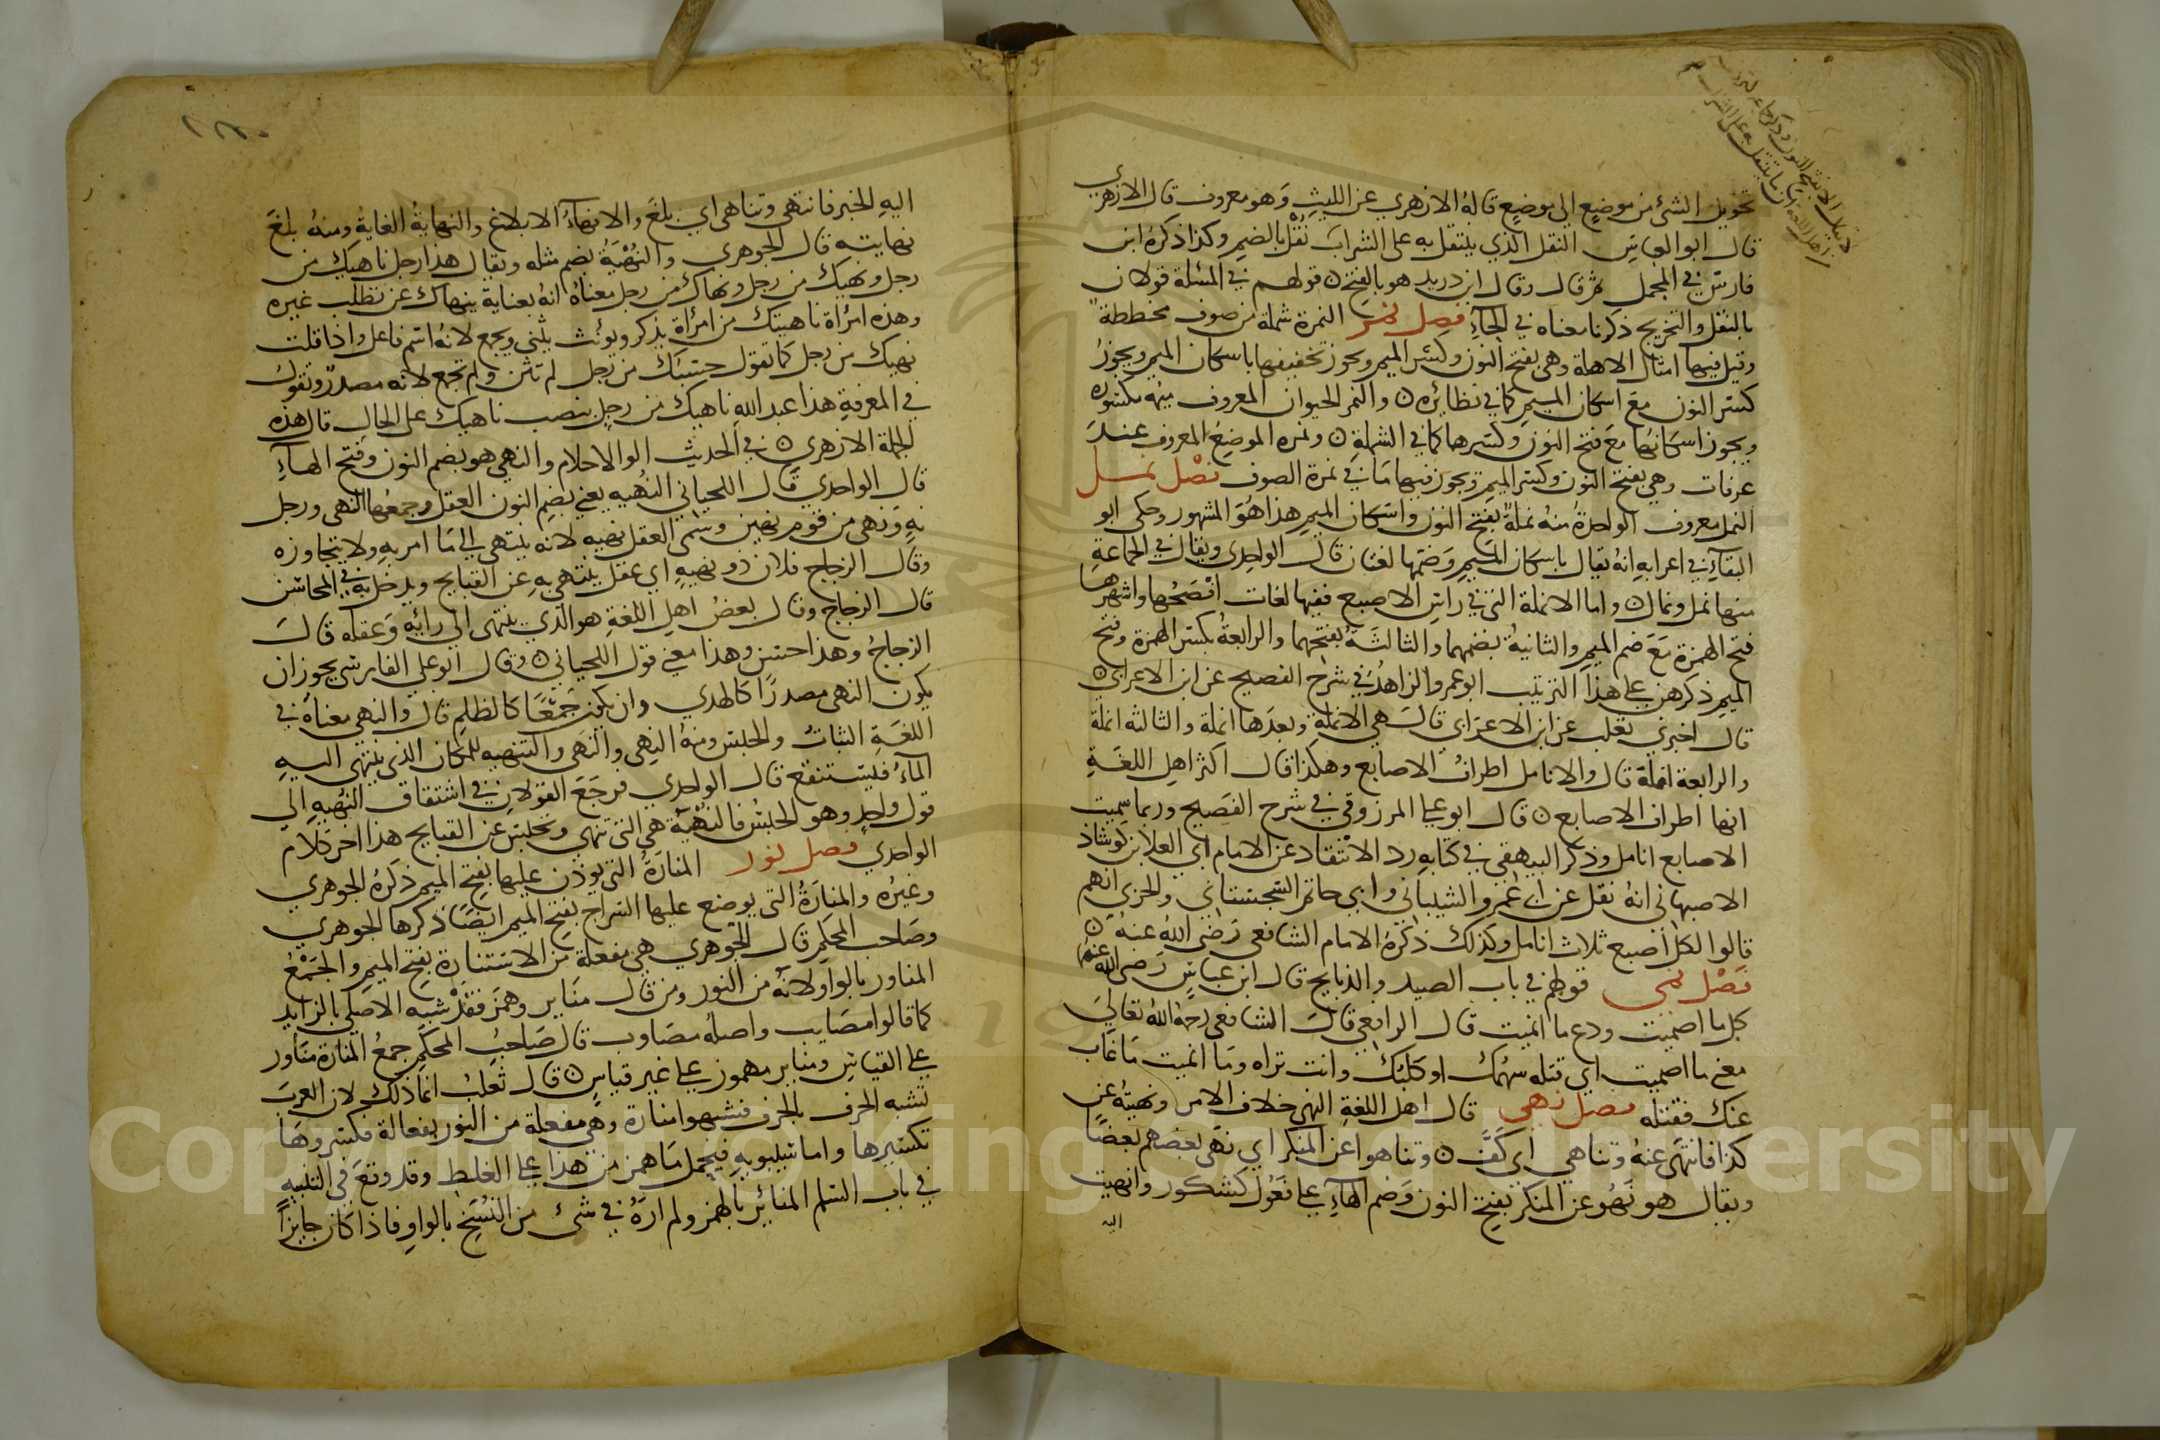 تحويل الشئ من موضع الى موضع قاله الازهري عن الليث وهو معروف قال الازهري
قال ابو العباس النقل الذي ينتقل به على الشراب نقل بالضم وكذا ذكره ابن
فارس في المجمل ثم قال وقال ابن دريد هو بالفتح ن قولهم في المسئلة قولان
بالنقل والتخريج ذكرنا معناه في الخاء فصل نمر النمرة شملة من صوف مخططة
وقيل فيها امثال الاهلة وهي بفتح النون وكسر الميم ويجوز تخفيفها باسكان الميم ويجوز
كسر النون مع اسكان الميم كما في نظائره ن والنمر الحيوان المعروف ميمه مكسورة
ويجوز اسكانها مع فتح النون وكسرها كما في الشملة ن ونمرة الموضع المعروف عند
عرفات وهي بفتح النون وكسر الميم ويجوز فيها ما في نمرة الصوف فصل نمل
النمل معروف الواحدة منه نملة بفتح النون واسكان الميم هذا هو المشهور وحكى ابو
البقاء في اعرابه انه يقال باسكان الميم وضمها لغتان قال الواحدي ويقال في الجماعة
منها نمل ونمال ن واما الانملة التي في راس الاصبع ففيها لغات افصحها واشهرها
فتح الهمزة مع ضم الميم والثانية بضمهما والثالثة بفتحهما والرابعة بكسر الهمزة وفتح
الميم ذكرهن على هذا الترتيب ابو عمر والزاهد في شرح الفصيح عن ابن الاعرابي ن
قال اخبرني ثعلب عن ابن الاعرابي قال هي الانملة وبعدها انملة والثالثه انملة
والرابعة انملة قال والانامل اطراف الاصابع وهكذا قال اكثر اهل اللغة
انها اطراف الاصابع ن قال ابو علي المرزوقي في شرح الفصيح وربما سميت
الاصابع انامل وذكر البيهقي في كتابه رد الانتقاد عن الامام ابي العلا بن كوشاذ
الاصبهاني انه نقل عن ابي عمرو الشيباني وابي حاتم السجستاني والجرمي انهم
قالوا لكل اصبع ثلاث انامل وكذلك ذكره الامام الشافعي رضي الله عنه ن
فصل نمى قولهم في باب الصيد والذبايح قال ابن عباس رضي الله عنهما
كل ما اصميت ودع ما انميت قال الرافعي قال الشافعي رحمه الله تعالى
معنى ما اصميت اي قتله سهمك او كلبك وانت تراه وما انميت ما غاب
عنك فقتله فصل نهى قال اهل اللغة النهي خلاف الامر ونهيته عن
كذا فانتهى عنه وتناهى اي كف ن وتناهوا عن المنكر اي نهى بعضهم بعضا
ويقال هو نهو عن المنكر بفتح النون وضم الهاء على فعول كشكور وانهيت
اليه
اليه الخبر فانتهى وتناهى اي بلغ والانهاء الابلاغ والنهاية الغاية ومنه بلغ
نهايته قال الجوهري والنهية بضم مثله ويقال هذا رجل ناهيك من
رجل ونهيك من رجل ونهاك من رجل معناه انه بعناية ينهاك عن تطلب غيره
وهذه امرأة ناهيتك من امرأة يذكر ويؤنث يثنى ويجمع لانه اسم فاعل واذا قلت
نهيك من رجل كما تقول حسبك من رجل لم تثن ولم تجمع لانه مصدر وتقول
في المعرفة هذا عبد الله ناهيك من رجل بنصب ناهيك على الحال قال هذه
الجملة الازهري ن في الحديث اولوا الاحلام والنهى هو بضم النون وفتح الهاء
قال الواحدي قال اللحياني النهيه يعني بضم النون العقل وجمعها النهى ورجل
نهٍ ونهى من قوم نهين وسمى العقل نهيه لانه ينتهى الى ما امر به ولا يتجاوزه
وقال الزجاج فلان ذو نهيه اي عقل ينتهي به عن القبايح ويدخل به في المحاسن
قال الزجاج وقال بعض اهل اللغة هو الذي ينتهى الى رايه وعقله قال
الزجاج وهذا حسن وهذا معنى قول اللحياني ن وقال ابو علي الفارسي يجوز ان
يكون النهى مصدرا كالهدى وان يكون جمعا كالظلم قال والنهى معناه في
اللغة الثبات والحبس ومنه النِهى والنَهى والتنهيه للمكان الذي ينتهى اليه
الماء فيستنقع قال الواحدي فرجع القولان في اشتقاق النهيه الى
قول واحد وهو الحبس فالنهية هي التي تنهى وتحبس عن القبايح هذا اخر كلام
الواحدي فصل نور المنارة التي يوذن عليها بفتح الميم ذكره الجوهري
وغيره والمنارة التي يوضع عليها السراج بفتح الميم ايضا ذكرها الجوهري
وصاحب المحكم قال الجوهري هي مفعلة من الاستنارة بفتح الميم والجمع
المناور بالواو لانه من النور ومن قال مناير وهمز فقد شبه الاصلي بالزايد
كما قالوا مصايب واصله مصاوب قال صاحب المحكم جمع المنارة مناور
على القياس ومناير مهموز على غير قياس ن قال ثعلب انما ذلك لان العرب
تشبه الحرف بالحرف فشبهوا منارة وهي مفعلة من النور بفعالة فكسروها
تكسيرها واما سيبويه فيحمل ما همز من هذا على الغلط وقد وقع في التنبيه
في باب السلم المنائر بالهمز ولم اره في شئ من النسخ بالواو فاذا كان جايزا
Copyright © King Saud University